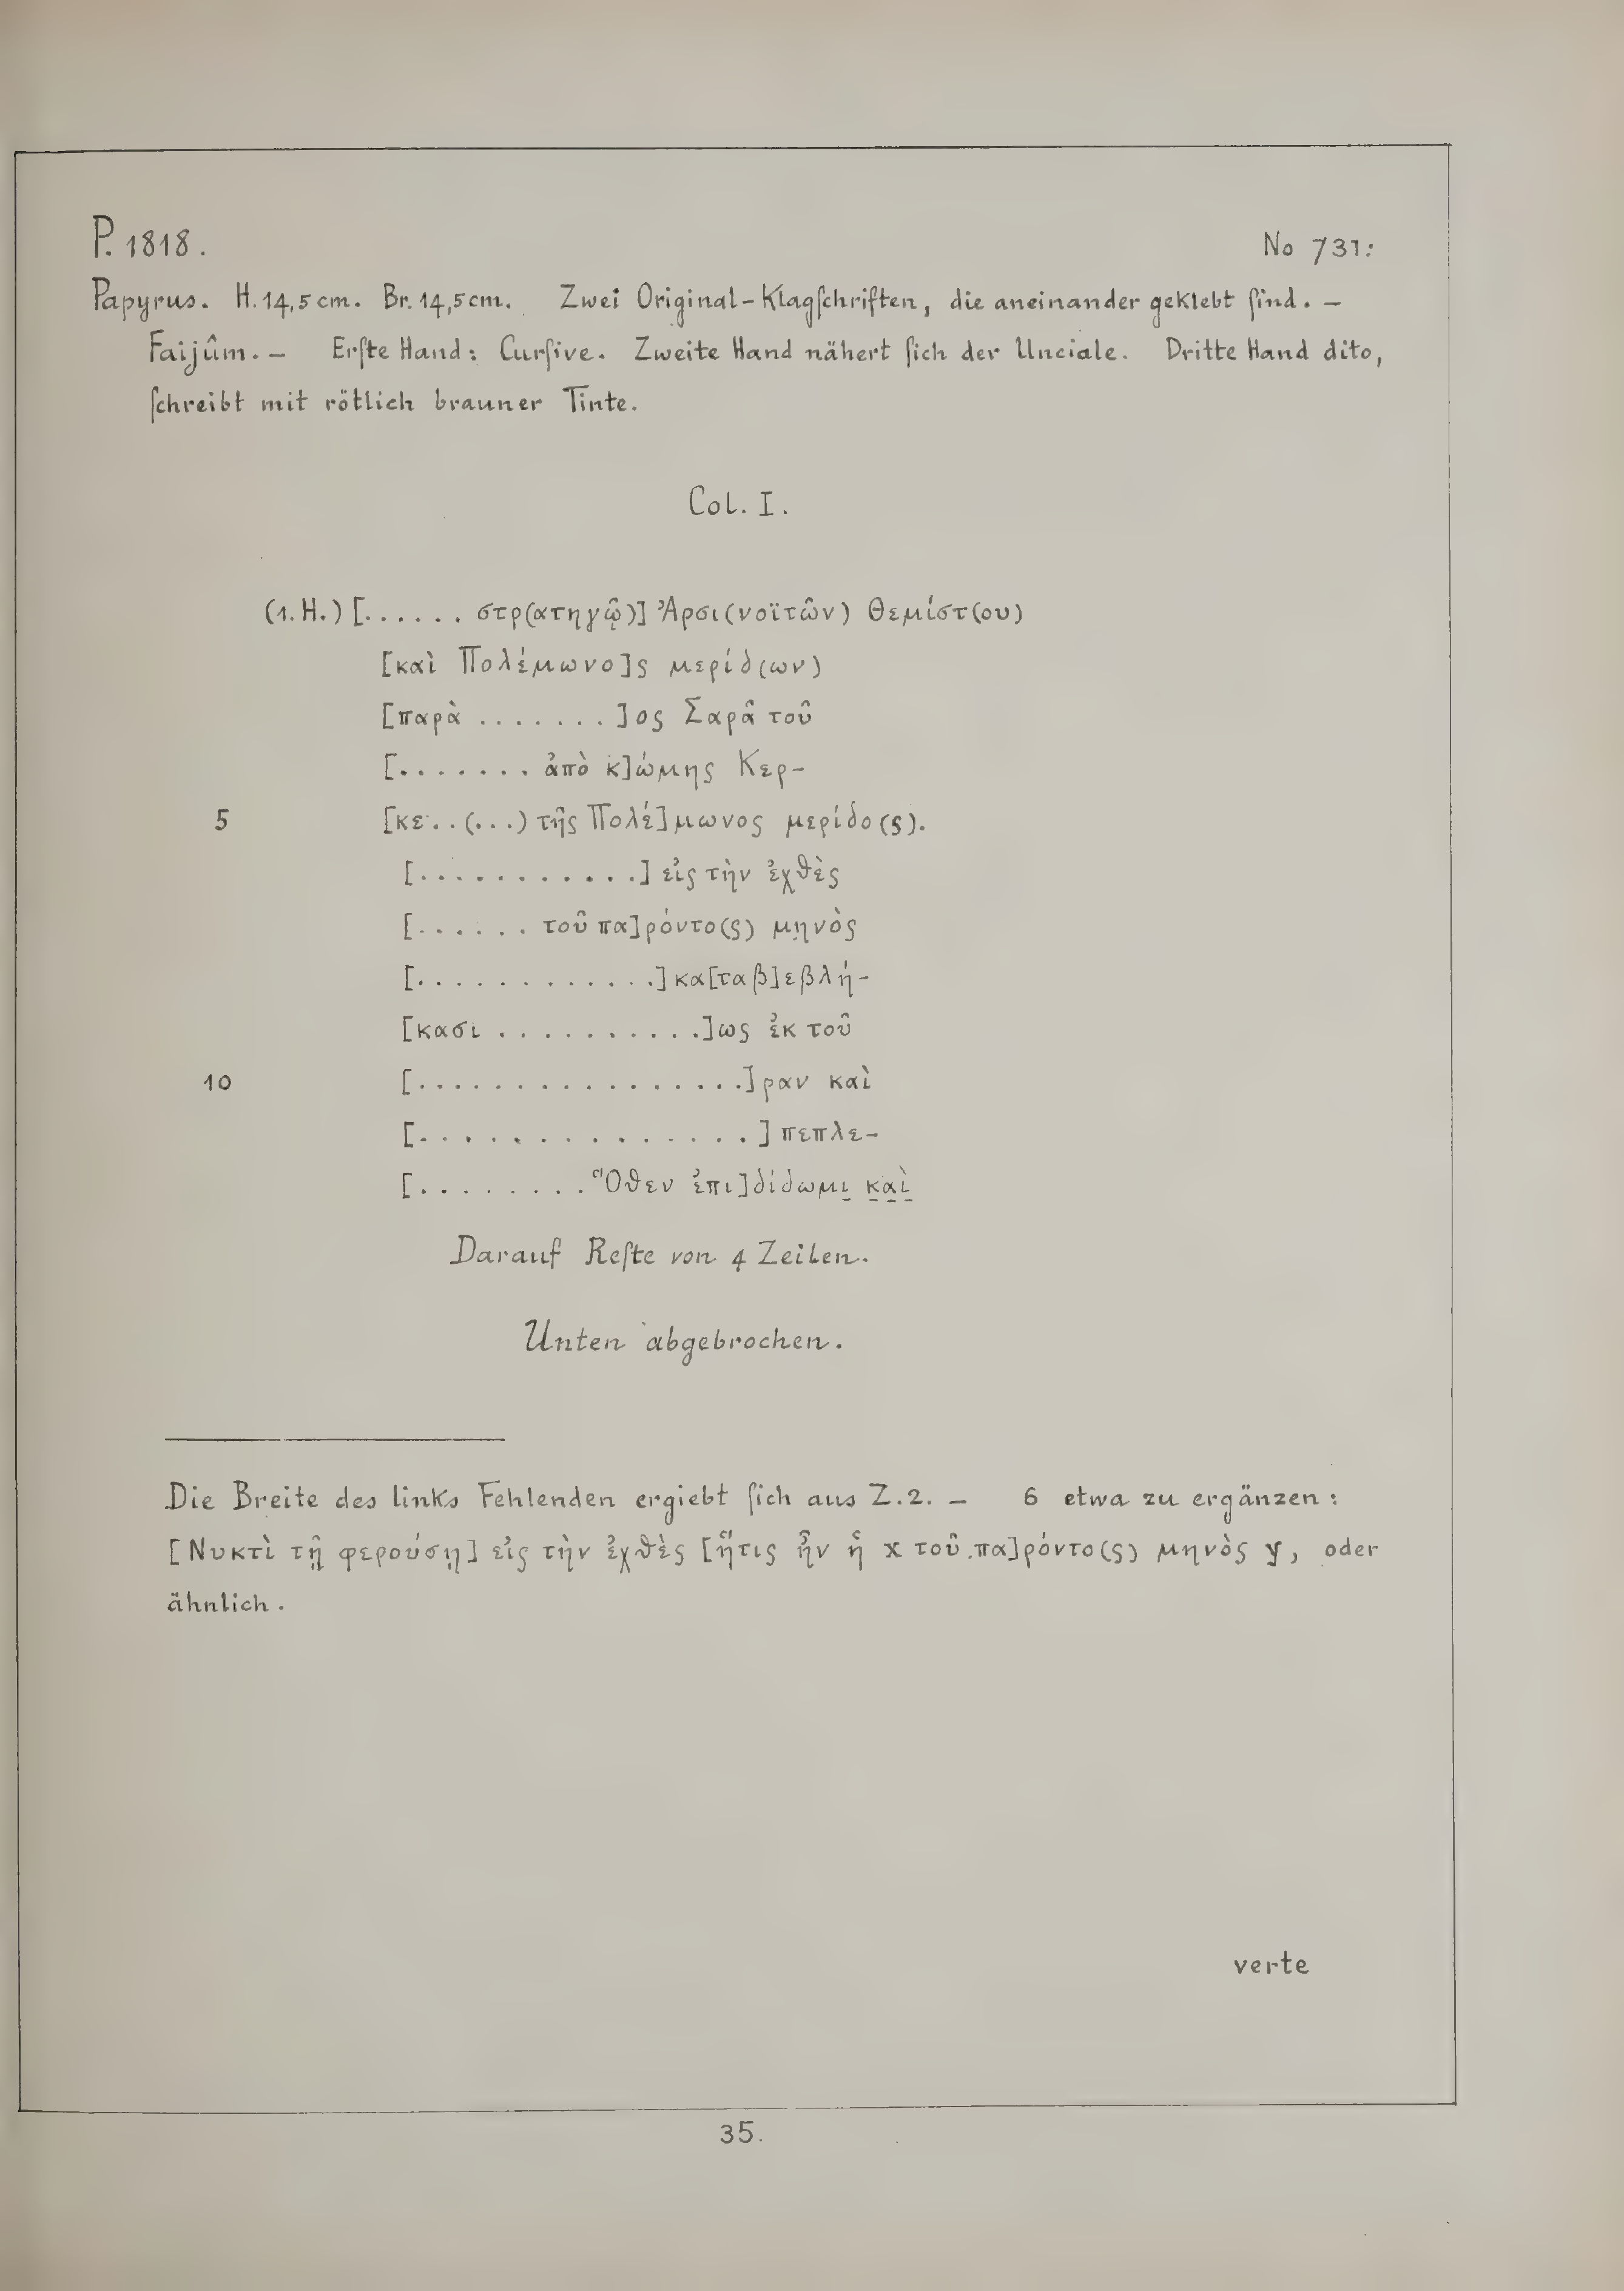 P. 1818.
No 731:
Papyrus. H. 14,5 cm. Br. 14,5 cm. Zwei Original-Klagſchriften, die aneinander geklebt ſind. –
Faijûm. – Erſte Hand: Curſive. Zweite Hand nähert ſich der Unciale. Dritte Hand dito,
ſchreibt mit rötlich brauner Tinte.
Col. I.
(1. H.) [. . . . . . στρ(ατηγῷ)] Ἀρσι(νοϊτῶν) Θεμίστ(ου)
[καὶ Πολέμωνο]ς μερίδ(ων)
[παρὰ . . . . . . . ]ος Σαρᾶ τοῦ
[. . . . . . . ἀπὸ κ]ώμης Κερ-
5 [κε . . (. . .) τῆς Πολέ]μωνος μερίδο(ς).
[. . . . . . . . . . .] εἰς τὴν ἐχθὲς
[. . . . . . τοῦ πα]ρόντο(ς) μη̣νὸς
[. . . . . . . . . . . .] κα[ταβ]εβλή-
[κασι . . . . . . . . . . .]ως ἐκ τοῦ
10 [. . . . . . . . . . . . . . . .]ραν καὶ
[. . . . . . . . . . . . . . . ] πεπλε-
[. . . . . . . . . Ὅθεν ἐπι]δίδωμι̲ κ̲α̲ὶ̲
Darauf Reſte von 4 Zeilen.
Unten abgebrochen.
Die Breite des links Fehlenden ergiebt ſich aus Z. 2. – 6 etwa zu ergänzen:
[Νυκτὶ τῇ φερούσῃ] εἰς τὴν ἐχθὲς [ἥτις ἦν ἡ x τοῦ πα]ρόντο(ς) μηνὸς y, oder
ähnlich.
verte
35.